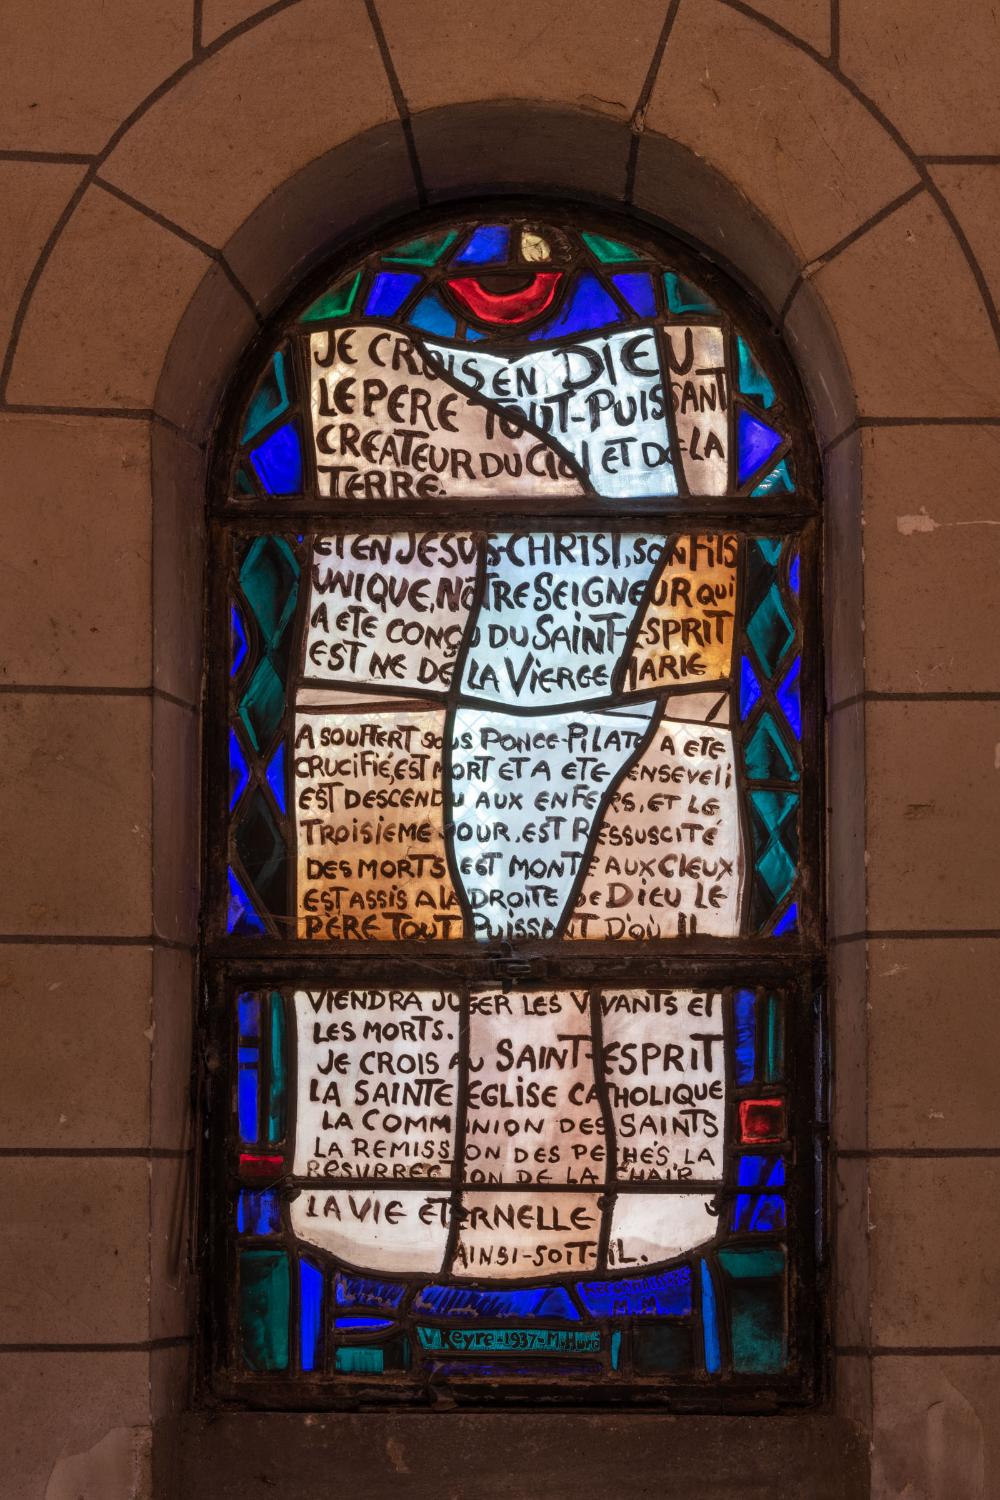 JE CROIS EN DIEU
LE PERE TOUT-PUISSANT
CREATEUR DU CIEL ET DE LA
TERRE.
ET EN JESUS-CHRIST, SON FILS
UNIQUE, NOTRE SEIGNEUR QUI
A ETE CONÇU DU SAINT-ESPRIT
EST NE DE LA VIERGE MARIE
A SOUFFERT SOUS PONCE-PILATE A ETE
CRUCIFIÉ, EST MORT ET A ETE ENSEVELI
EST DESCENDU AUX ENFERS, ET LE
TROISIEME JOUR, EST RESSUSCITÉ
DES MORTS EST MONTE AUX CIEUX
EST ASSIS A LA DROITE DE DIEU LE
PÈRE TOUT PUISSANT D'OÙ IL
VIENDRA JUGER LES VIVANTS ET
LES MORTS.
JE CROIS AU SAINT-ESPRIT
LA SAINTE EGLISE CATHOLIQUE
LA COMMUNION DES SAINTS
LA REMISSION DES PECHÉS, LA
RESURRECTION DE LA CHAIR
LA VIE ETERNELLE
AINSI-SOIT-IL.
M.M.
V. Keyre-1937-M.